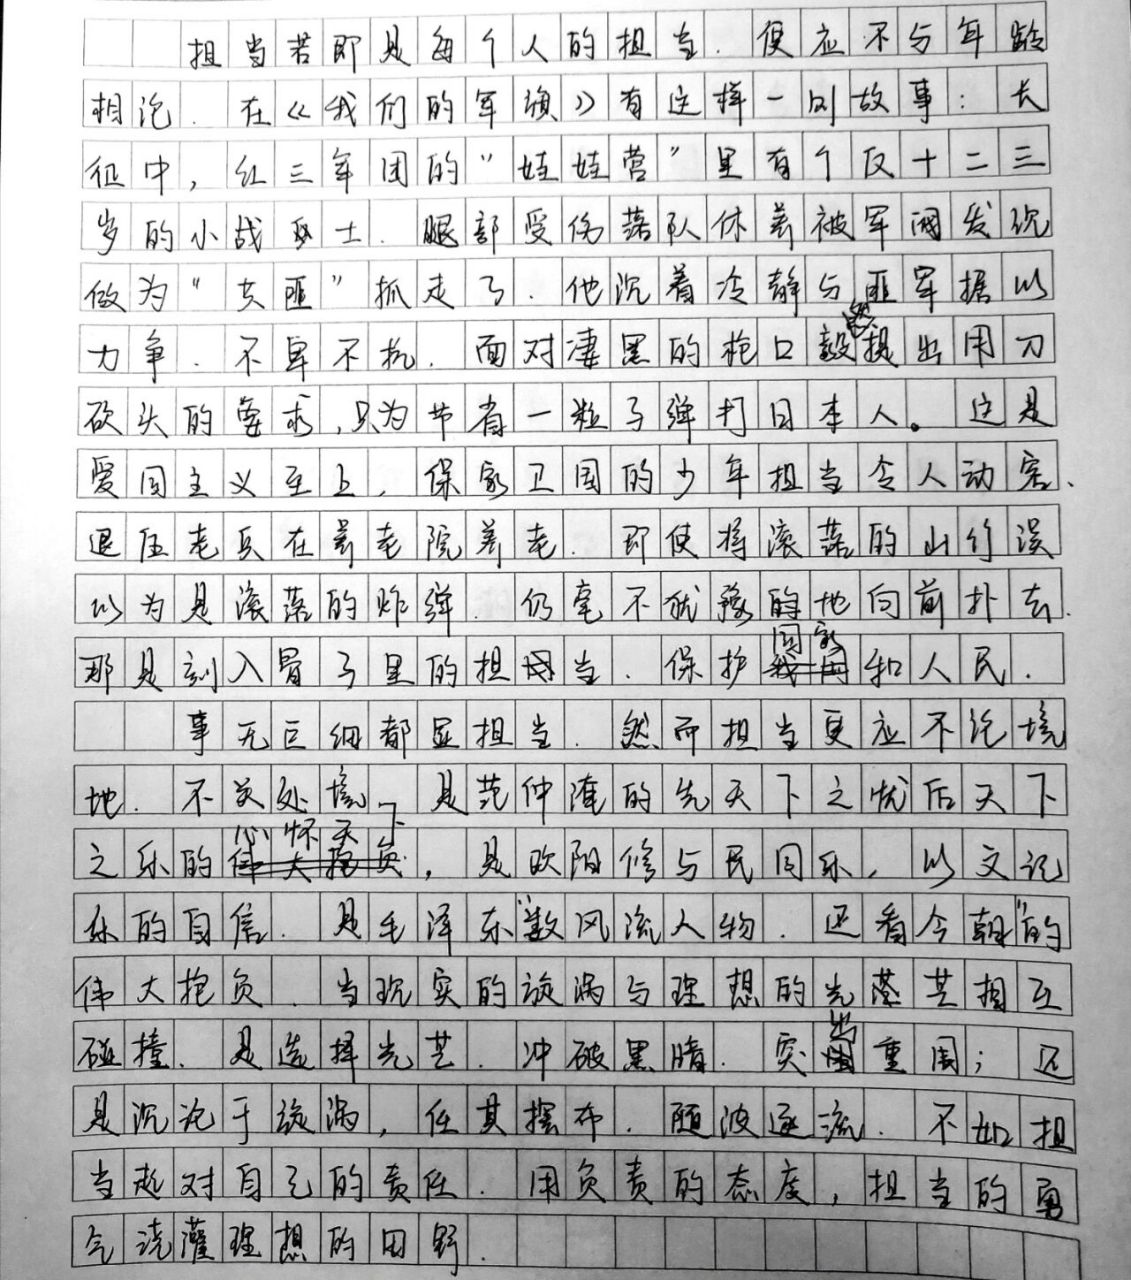 担当若即是每个人的担当.便应不与年龄
相论.在《我们的军旗》有这样一则故事:长
征中,红三军团的"娃娃营"里有个仅十二三
岁的小战士.腿部受伤落队休养被军阀发现
做为"共匪"抓走了.他沉着冷静与匪军据以
力争.不卑不抗.面对凄黑的枪口毅然提出用刀
砍头的要求,只为节省一粒子弹打日本人。这是
爱国主义至上,保家卫国的少年担当令人动容、
退伍老兵在养老院养老.即使将滚落的山竹误
以为是滚落的炸弹.仍毫不犹豫的地向前扑去.
那是刻入骨子里的担当.保护国家和人民.
事无巨细都显担当.然而担当更应不论境
地.不关处境、是范仲淹的先天下之忧后天下
之乐的心怀天下,是欧阳修与民同乐,以文记
乐的自信.是毛泽东"数风流人物.还看今朝"的
伟大抱负.当现实的漩涡与理想的光芒相互
碰撞.是选择光芒.冲破黑暗.突出重围;还
是沉沦于漩涡,任其摆布.随波逐流.不如担
当起对自己的责任.用负责的态度,担当的勇
气浇灌理想的田野.